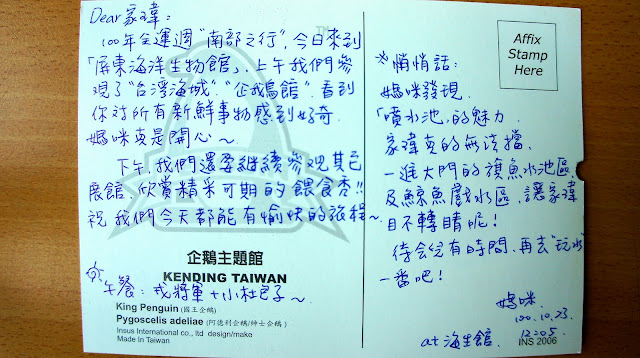 Dear 家瑋：
100年全運週"南部之行"，今日來到
「屏東海洋生物館」，上午我們參
觀了"台灣海域"、"企鵝館"，看到
你对所有新鮮事物感到好奇，
媽咪真是開心～
下午，我們還要繼續參觀其它
展館，欣賞精采可期的餵食秀!!
祝 我們今天都能有愉快的旅程～
企鵝主題館
KENDING TAIWAN
午餐：戎將軍＋小杜包子～
King Penguin (國王企鵝)
Pygoscelis adeliae (阿德利企鵝/紳士企鵝)
Insus International co., ltd design/make
Made In Taiwan
TM
Affix
Stamp
Here
※悄悄話：
媽咪發現，
「噴水池」的魅力
家瑋真的無法擋，
一進大門的旗魚水池區
及鯨魚戲水區，讓家瑋
目不轉睛呢！
待會兒有時間，再去"玩水"
一番吧！
媽咪
100.10.23.
12:05.
at 海生館.
INS 2006